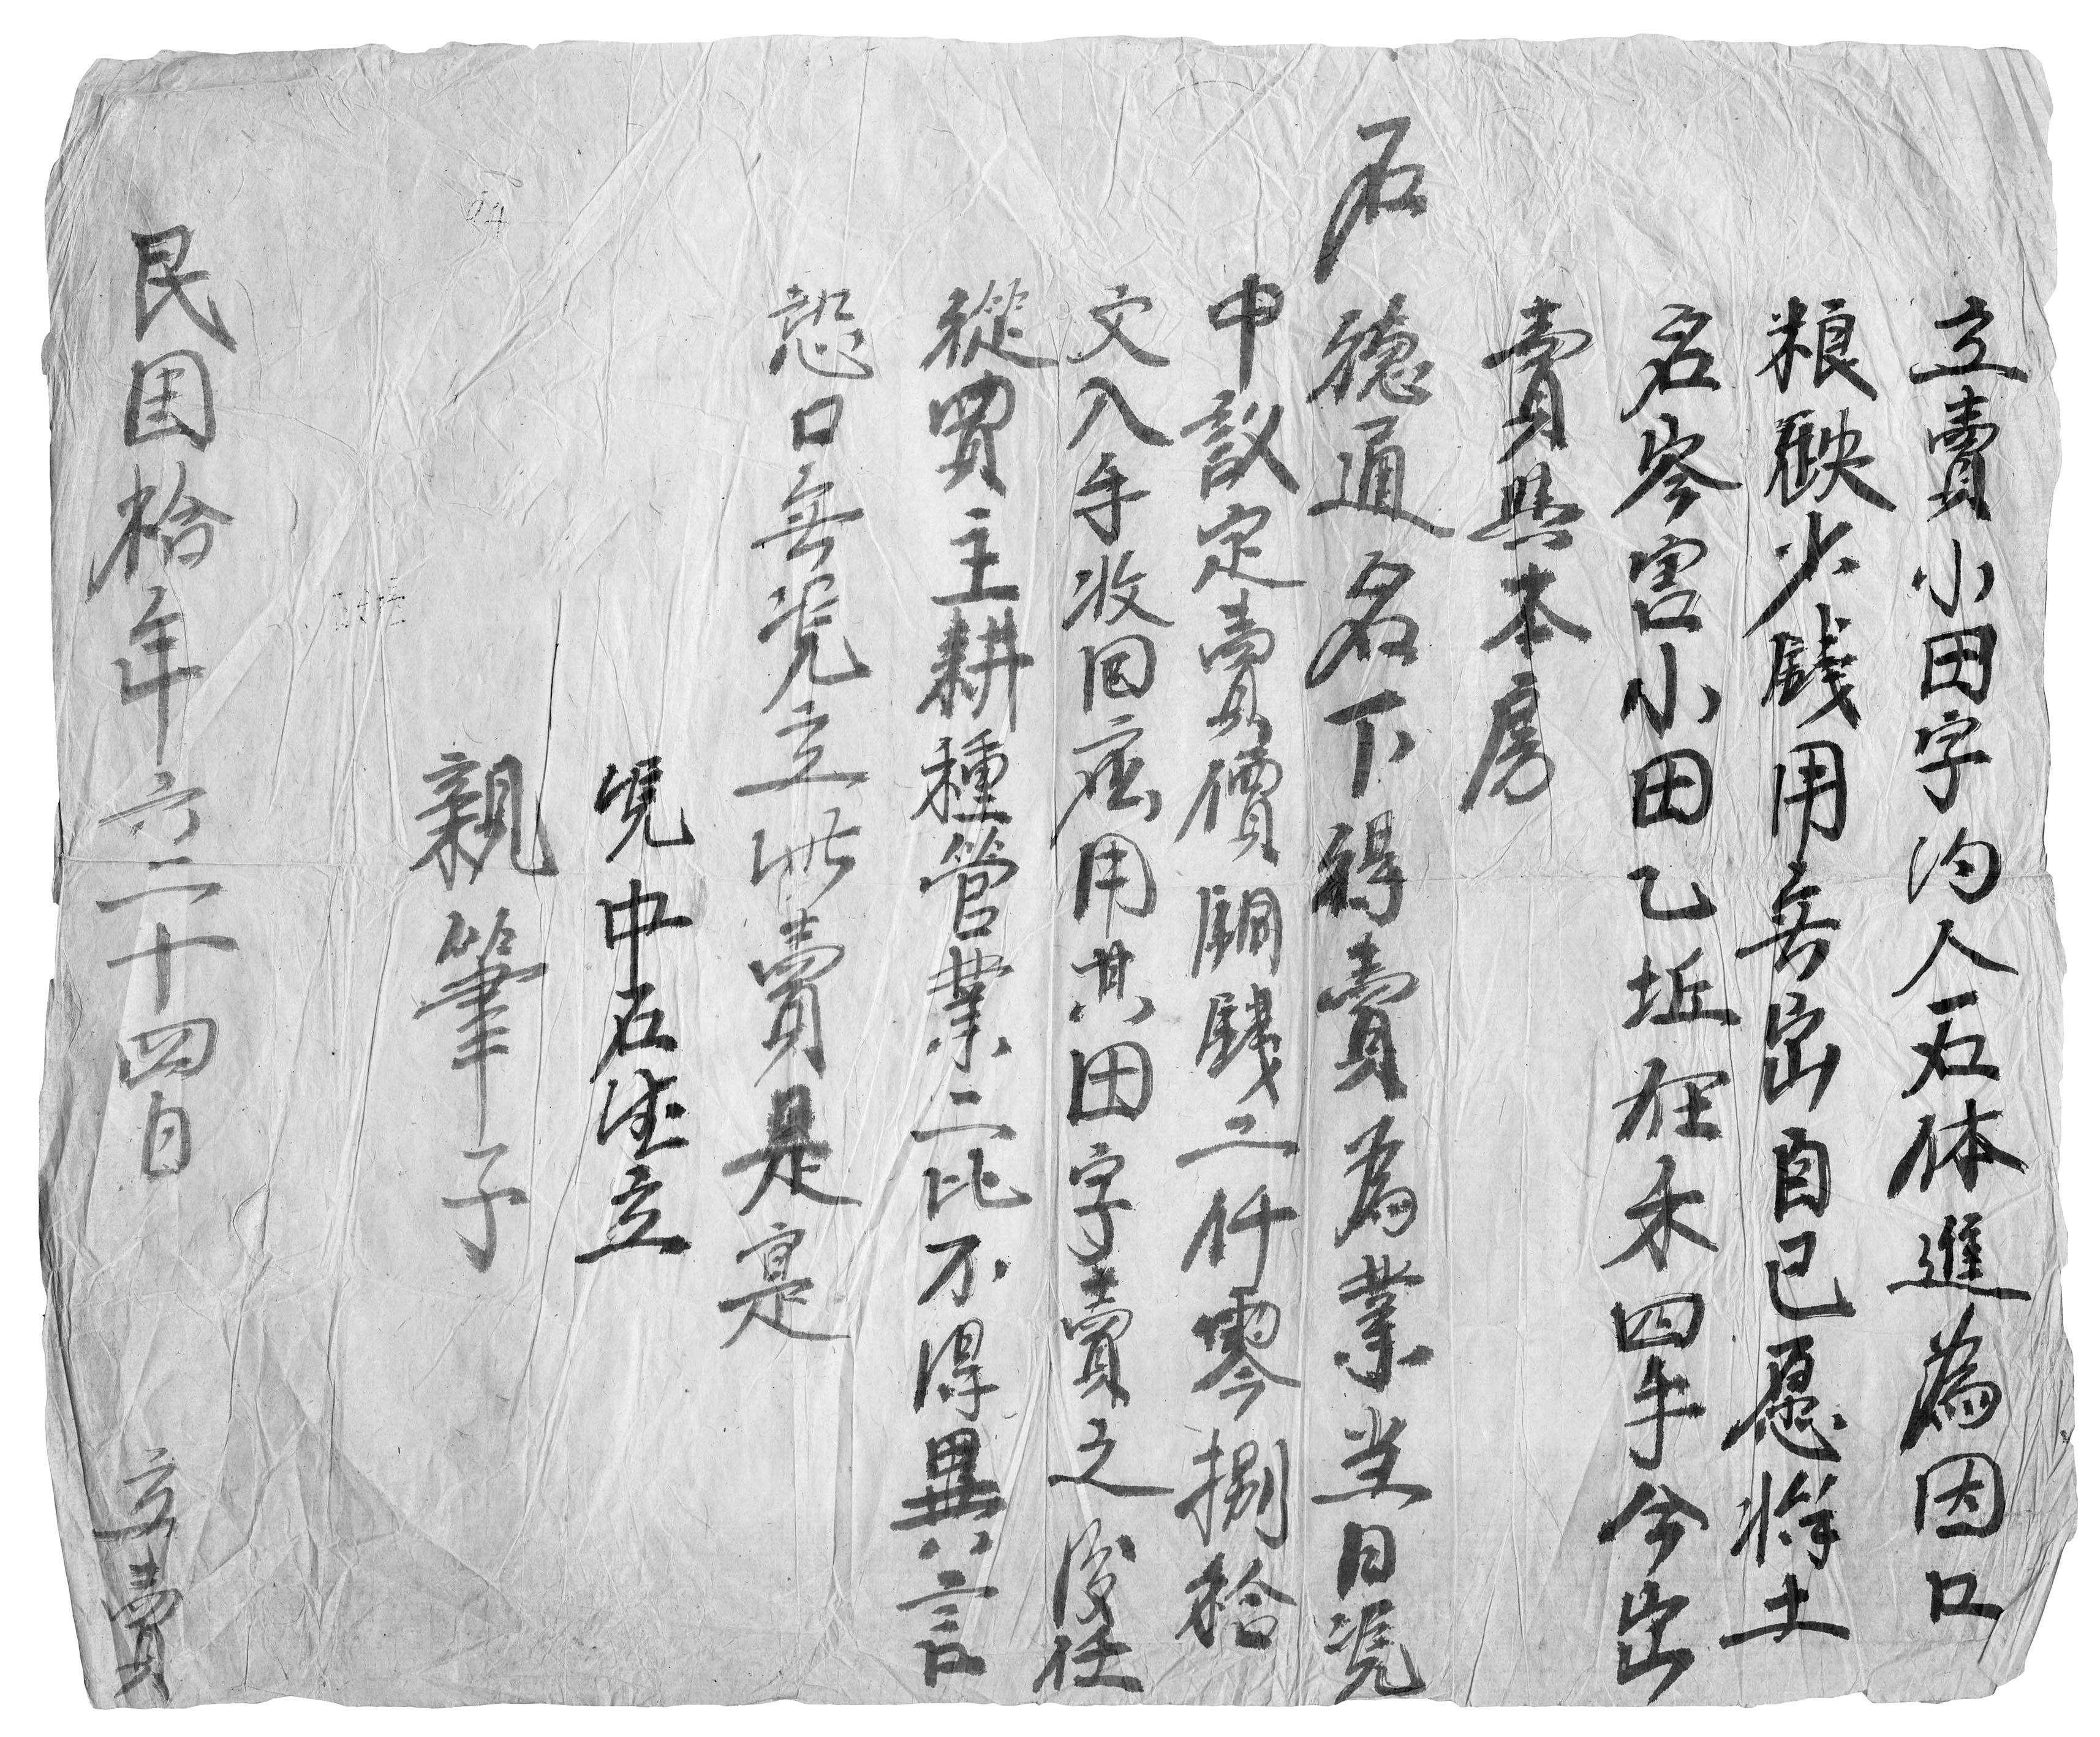 立賣小田字约人石体進為因口
粮缺少錢用無出自己愿將土
名岑宫小田乙坵在禾四手今出
賣與本房
石德通名下得賣為業当日凭
中议定賣價銅錢二仟零捌拾
文入手收回应用其田字賣之後任
從買主耕種管業二比不得異言
恐口無凭立此賣是寔
凭中石生立
親筆子
民国拾年六二十四日 立賣